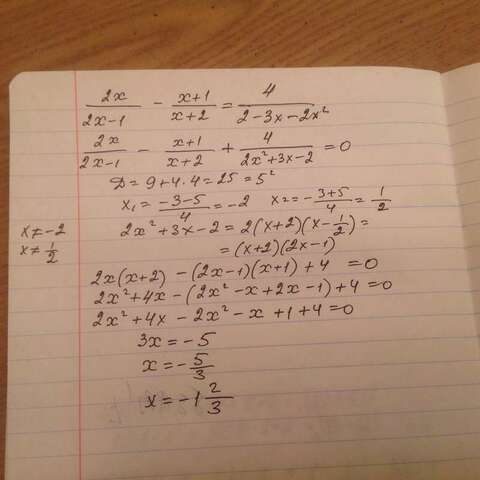 2x/(2x-1) - (x+1)/(x+2) = 4/(2-3x-2x²)
2x/(2x-1) - (x+1)/(x+2) + 4/(2x²+3x-2) = 0
D = 9+4·4 = 25 = 5²
x₁ = (-3-5)/4 = -2 x₂ = (-3+5)/4 = 1/2
x ≠ -2
x ≠ 1/2
2x²+3x-2 = 2(x+2)(x-1/2) =
= (x+2)(2x-1)
2x(x+2) - (2x-1)(x+1) + 4 = 0
2x²+4x - (2x²-x+2x-1) + 4 = 0
2x²+4x - 2x² - x + 1 + 4 = 0
3x = -5
x = -5/3
x = -1 2/3